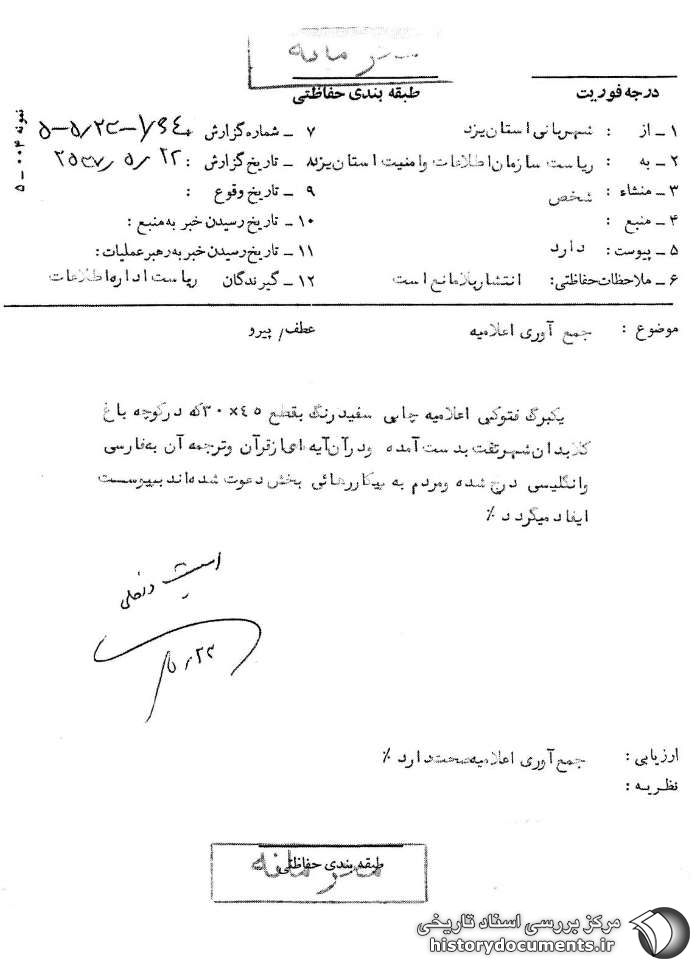 محرمانه
درجه فوریت
طبقه بندی حفاظتی
۱ – از : شهربانی استان یزد
۲ – به : ریاست سازمان اطلاعات وامنیت استان یزد
۳ – منشاء : شخص
۴ – منبع :
۵ – پیوست : دارد
۶ – ملاحظات حفاظتی: انتشار بلامانع است
۷ – شماره گزارش
۸ – تاریخ گزارش : ۲۲ / ۵ / ۲۵۳۷
۹ – تاریخ وقوع :
۱۰ – تاریخ رسیدن خبر به منبع :
۱۱ – تاریخ رسیدن خبر به رهبر عملیات :
۱۲ – گیرندگان ریاست اداره اطلاعات
نمونه ۰۰۴ – ۵
موضوع : جمع آوری اعلامیه
عطف/ پیرو
یکبرگ فتوکپی اعلامیه چاپی سفیدرنگ بقطع ۴۵×۳۰ که درکوچه باغ
گلابدان شهرتفت بدست آمده ودرآن آیه ای ازقرآن وترجمه آن به فارسی
وانگلیسی درج شده ومردم به پیکاررهائی بخش دعوت شده اند بپیوست
ایفاد میگردد ٪
امنیت داخلی
ارزیابی : جمع آوری اعلامیه صحت دارد ٪
نظریه :
طبقه بندی حفاظتی
محرمانه
مرکز بررسی اسناد تاریخی
historydocuments.ir